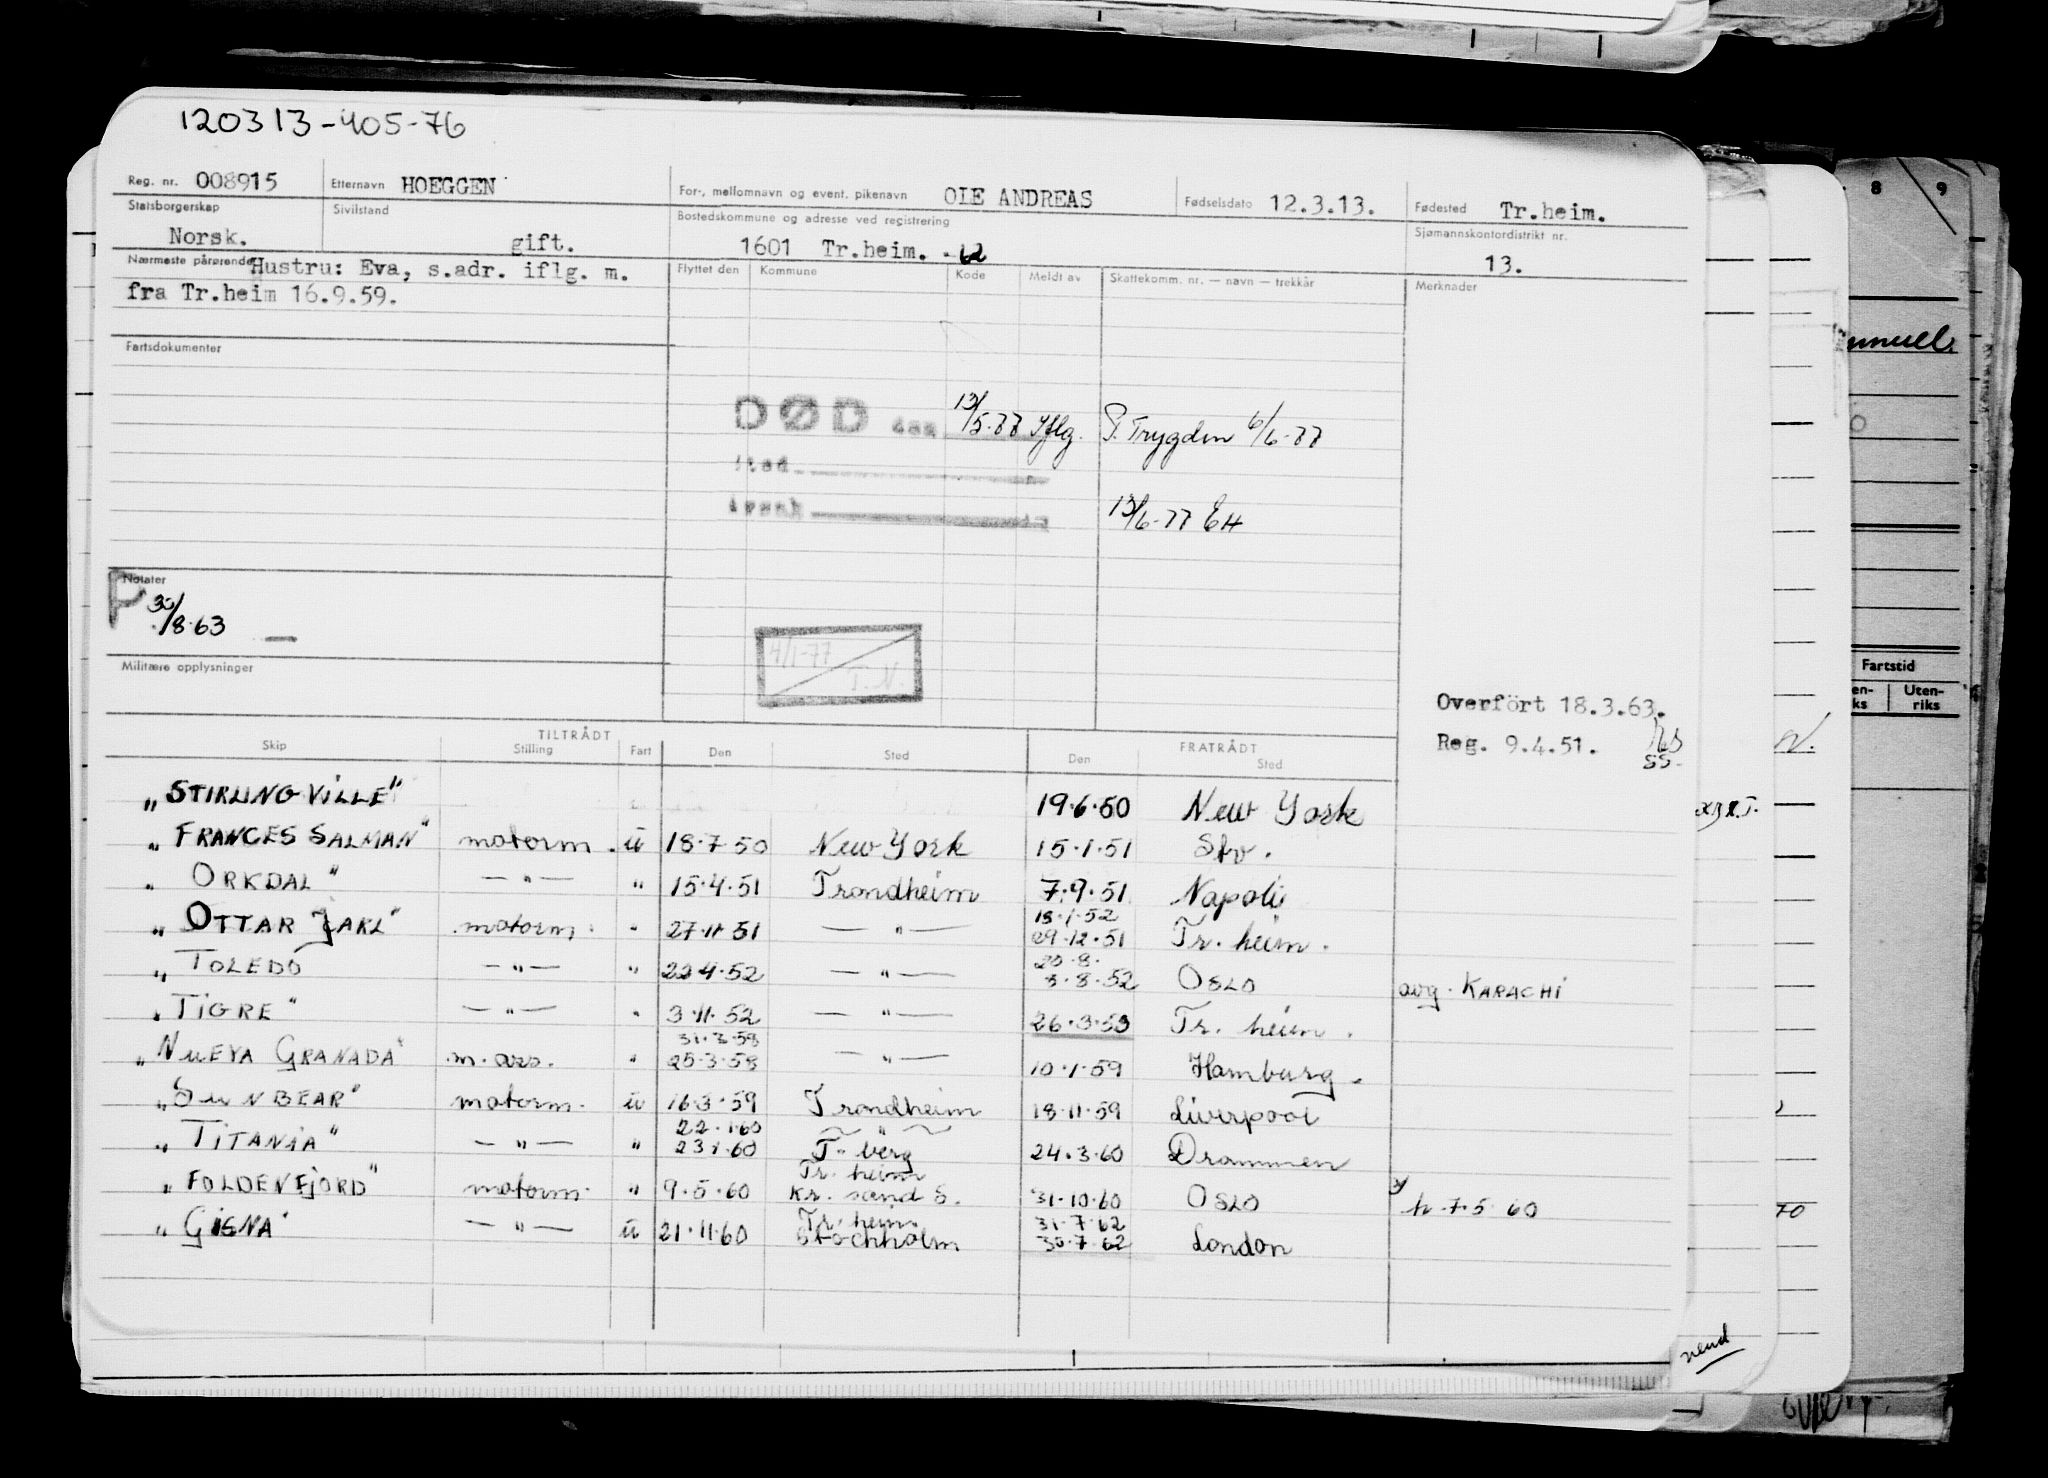 120313-405-76
Reg. nr. 008915 Etternavn HOEGGEN For-, mellomnavn og event. pikenavn OLE ANDREAS Fødselsdato 12.3.13. Fødested Tr.heim.
Statsborgerskap Norsk. Sivilstand gift. Bostedskommune og adresse ved registrering 1601 Tr.heim. -62 Sjømannskontordistrikt nr. 13.
Nærmeste pårørende Hustru: Eva, s.adr. iflg. m. Flyttet den Kommune Kode Meldt av Skattekomm. nr. — navn — trekkår Merknader
fra Tr.heim 16.9.59.
Fartsdokumenter
DØD den 13/5-77 Iflg. P. Trygden 6/6-77
sted
13/6-77 EH
Notater
P 30/8-63 —
4/1-77 T.N.
Militære opplysninger
Overfört 18.3.63.
Reg. 9.4.51.
SS-
TILTRÅDT FRATRÅDT
Skip Stilling Fart Den Sted Den Sted
"STIRLING VILLE" 19.6.50 New York
"FRANCES SALMAN" motorm. u 18.7.50 New York 15.1.51 Stv.
"ORKDAL" — " — " 15.4.51 Trondheim 7.9.51 Napoli
18.1.52
"OTTAR JARL" motorm. " 27.11.51 — " — 29.12.51 Tr. heim.
20.8.
"TOLEDO — " — " 22.4.52 — " — 3.8.52 OSLO avg. KARACHI
"TIGRE" — " — " 3.11.52 — " — 26.3.53 Tr. heim.
31.3.58
"NUEVA GRANADA" m. ass. " 25.3.58 — " — 10.1.59 Hamburg.
"SUNBEAR" motorm. u 16.3.59 Trondheim 18.11.59 Liverpool
22.1.60 — " —
"TITANIA" — " — " 23.1.60 T. berg 24.3.60 Drammen
Tr. heim
"FOLDENFJORD" motorm. " 9.5.60 Kr. sand S. 31.10.60 OSLO h. 7.5 60
Tr. heim 31.7.62
"GISNA" — " — u 21.11.60 Stockholm 30.7.62 London
nend
8 9
Fartstid
Uten-
riks
70